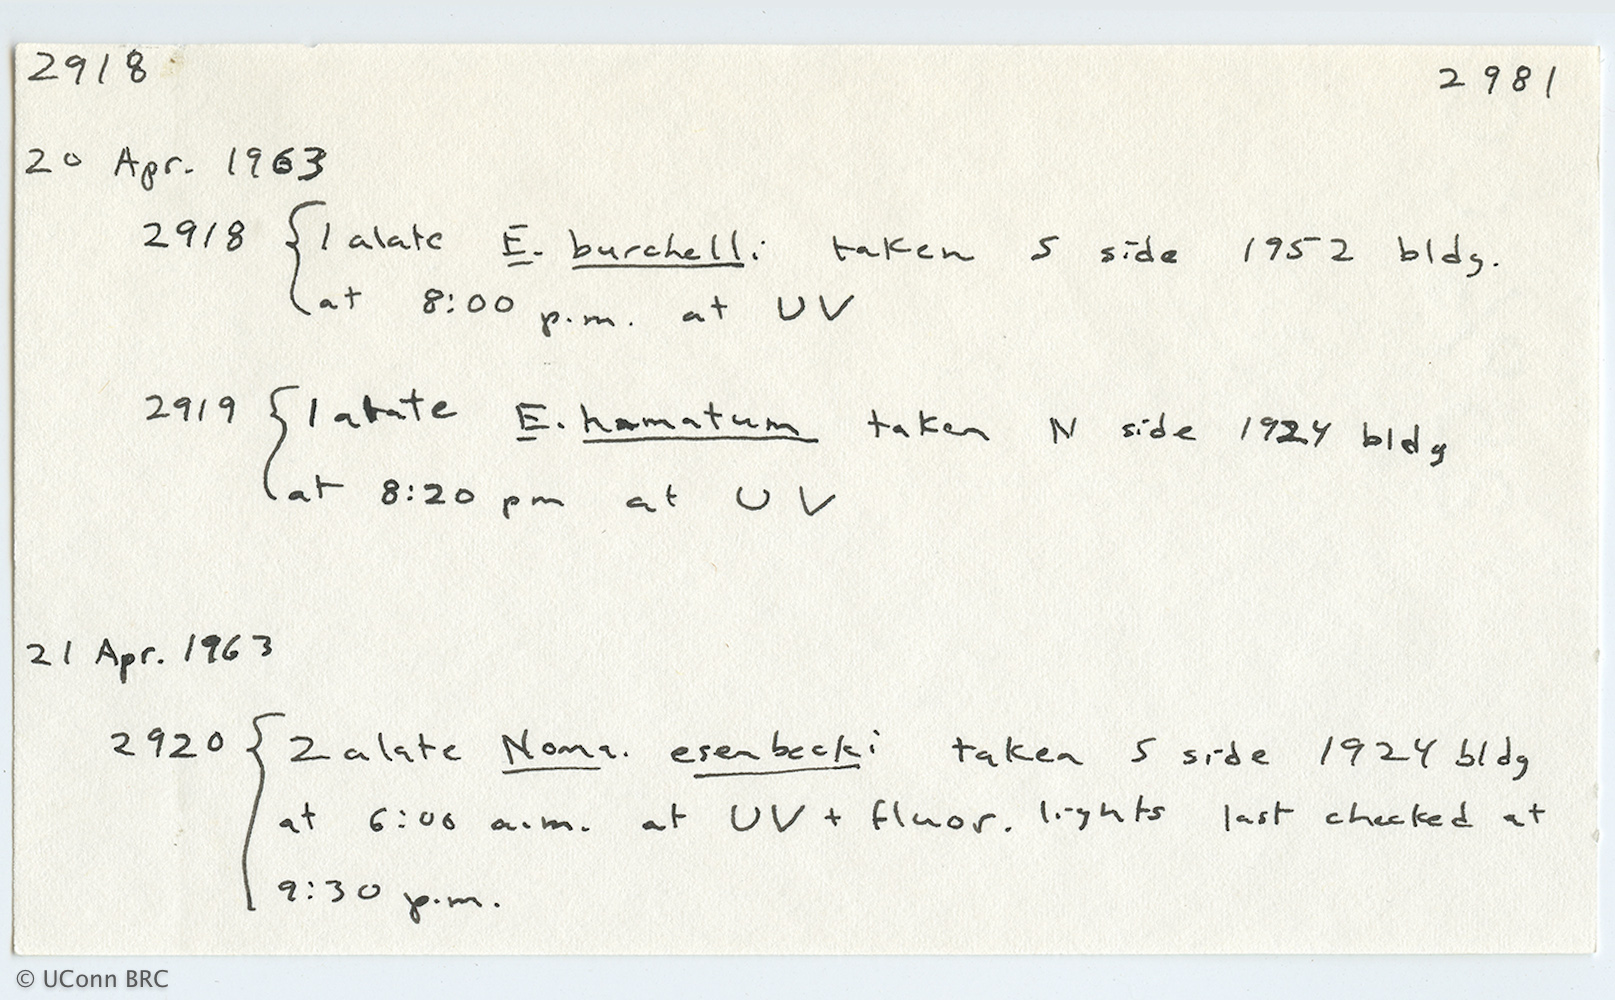 2918 2981
20 Apr. 1963
2918 { 1 alate E. burchelli taken S side 1952 bldg.
at 8:00 p.m. at UV
2919 { 1 alate E. hamatum taken N side 1924 bldg
at 8:20 pm at UV
21 Apr. 1963
2920 { 2 alate Noma. esenbecki taken S side 1924 bldg
at 6:00 a.m. at UV + fluor. lights last checked at
9:30 p.m.
© UConn BRC